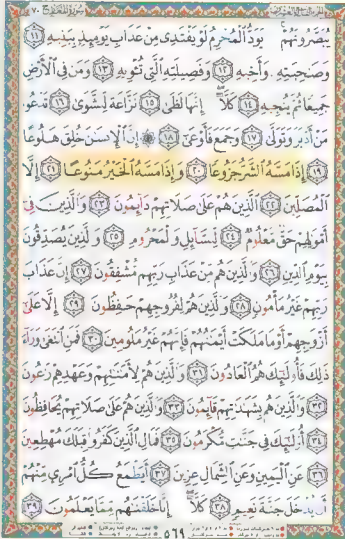 يُبَصَّرُونَهُمْ يَوَدُّ ٱلْمُجْرِمُ لَوْ يَفْتَدِى مِنْ عَذَابِ يَوْمِئِذٍۭ بِبَنِيهِ ١١
وَصَٰحِبَتِهِۦ وَأَخِيهِ ١٢ وَفَصِيلَتِهِ ٱلَّتِى تُـْٔوِيهِ ١٣ وَمَن فِى ٱلْأَرْضِ
جَمِيعًا ثُمَّ يُنجِيهِ ١٤ كَلَّآ إِنَّهَا لَظَىٰ ١٥ نَزَّاعَةً لِّلشَّوَىٰ ١٦ تَدْعُوا۟
مَنْ أَدْبَرَ وَتَوَلَّىٰ ١٧ وَجَمَعَ فَأَوْعَىٰٓ ١٨ ۞ إِنَّ ٱلْإِنسَٰنَ خُلِقَ هَلُوعًا
١٩ إِذَا مَسَّهُ ٱلشَّرُّ جَزُوعًا ٢٠ وَإِذَا مَسَّهُ ٱلْخَيْرُ مَنُوعًا ٢١ إِلَّا
ٱلْمُصَلِّينَ ٢٢ ٱلَّذِينَ هُمْ عَلَىٰ صَلَاتِهِمْ دَآئِمُونَ ٢٣ وَٱلَّذِينَ فِىٓ
أَمْوَٰلِهِمْ حَقٌّ مَّعْلُومٌ ٢٤ لِّلسَّآئِلِ وَٱلْمَحْرُومِ ٢٥ وَٱلَّذِينَ يُصَدِّقُونَ
بِيَوْمِ ٱلدِّينِ ٢٦ وَٱلَّذِينَ هُم مِّنْ عَذَابِ رَبِّهِم مُّشْفِقُونَ ٢٧ إِنَّ عَذَابَ
رَبِّهِمْ غَيْرُ مَأْمُونٍ ٢٨ وَٱلَّذِينَ هُمْ لِفُرُوجِهِمْ حَٰفِظُونَ ٢٩ إِلَّا عَلَىٰٓ
أَزْوَٰجِهِمْ أَوْ مَا مَلَكَتْ أَيْمَٰنُهُمْ فَإِنَّهُمْ غَيْرُ مَلُومِينَ ٣٠ فَمَنِ ٱبْتَغَىٰ وَرَآءَ
ذَٰلِكَ فَأُو۟لَٰٓئِكَ هُمُ ٱلْعَادُونَ ٣١ وَٱلَّذِينَ هُمْ لِأَمَٰنَٰتِهِمْ وَعَهْدِهِمْ رَٰعُونَ
٣٢ وَٱلَّذِينَ هُم بِشَهَٰدَٰتِهِمْ قَآئِمُونَ ٣٣ وَٱلَّذِينَ هُمْ عَلَىٰ صَلَاتِهِمْ يُحَافِظُونَ
٣٤ أُو۟لَٰٓئِكَ فِى جَنَّٰتٍ مُّكْرَمُونَ ٣٥ فَمَالِ ٱلَّذِينَ كَفَرُوا۟ قِبَلَكَ مُهْطِعِينَ
٣٦ عَنِ ٱلْيَمِينِ وَعَنِ ٱلشِّمَالِ عِزِينَ ٣٧ أَيَطْمَعُ كُلُّ ٱمْرِئٍ مِّنْهُمْ
أَن يُدْخَلَ جَنَّةَ نَعِيمٍ ٣٨ كَلَّآ إِنَّا خَلَقْنَٰهُم مِّمَّا يَعْلَمُونَ ٣٩
٥٦٩